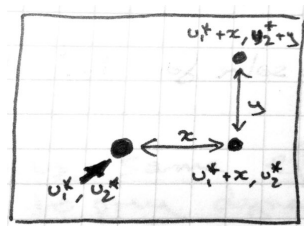 u₁*+x, u₂*+y
y
x
u₁*+x, u₂*
u₁*, u₂*